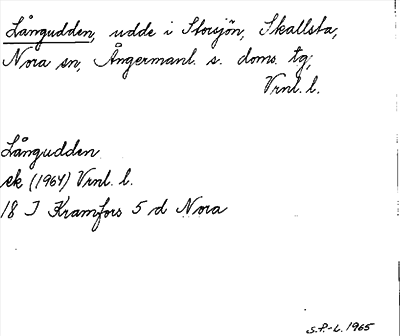 Långudden, udde i Storsjön, Skallsta,
Nora sn, Ångermanl. s. doms. tg,
Vrnl. l.
Långudden
ek (1964) Vrnl. l.
18 I Kramfors 5 d Nora
S.P.-L. 1965